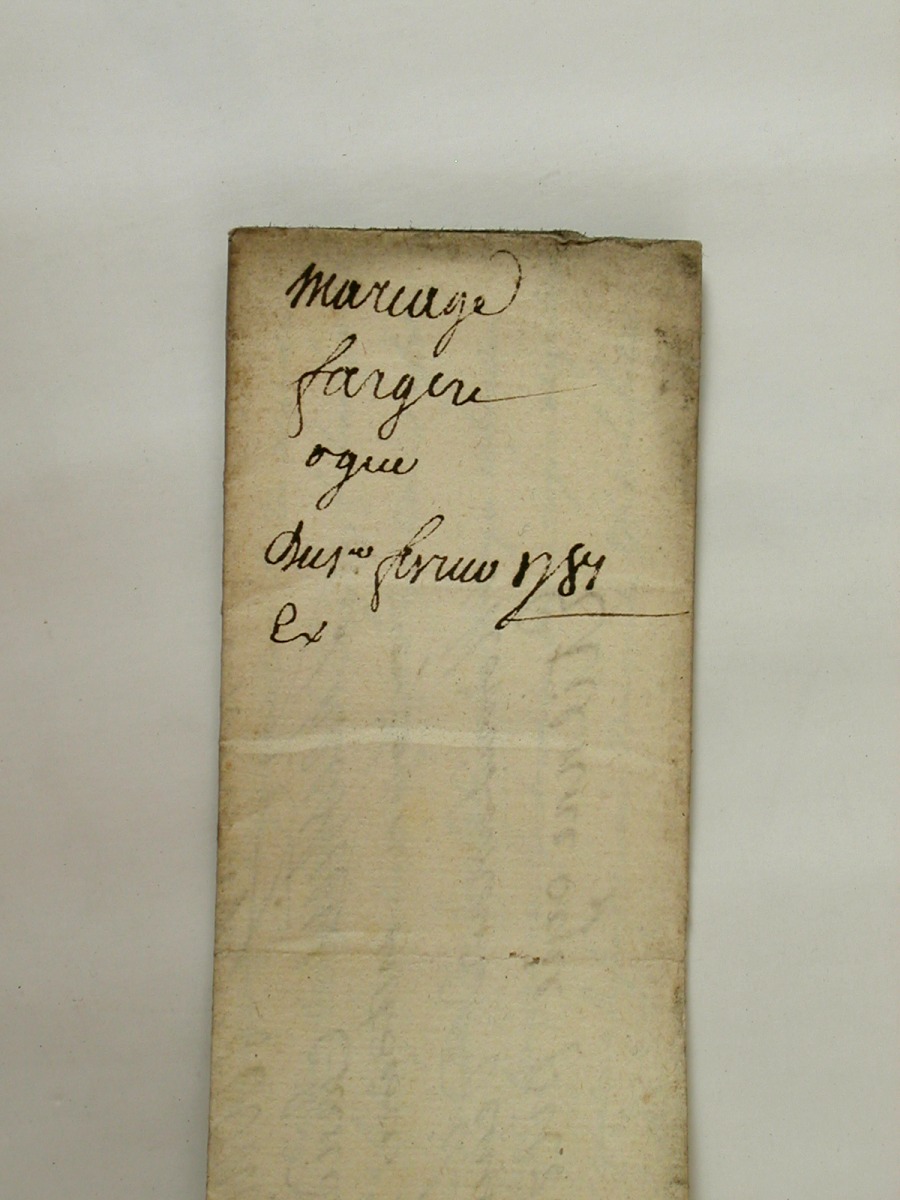 Mariage
fargere
ogier
fevrier 1781
Ex